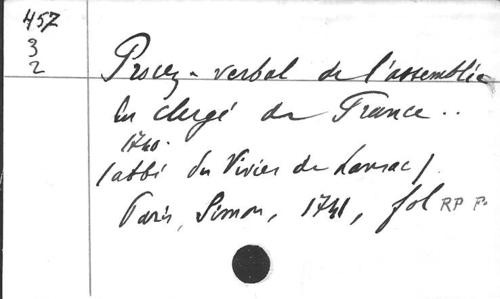 457
3
2
Procez-verbal de l'assemblée
du clergé de France..
1740.
(abbé du Vivier de Lansac)
Paris, Simon, 1741, fol RP